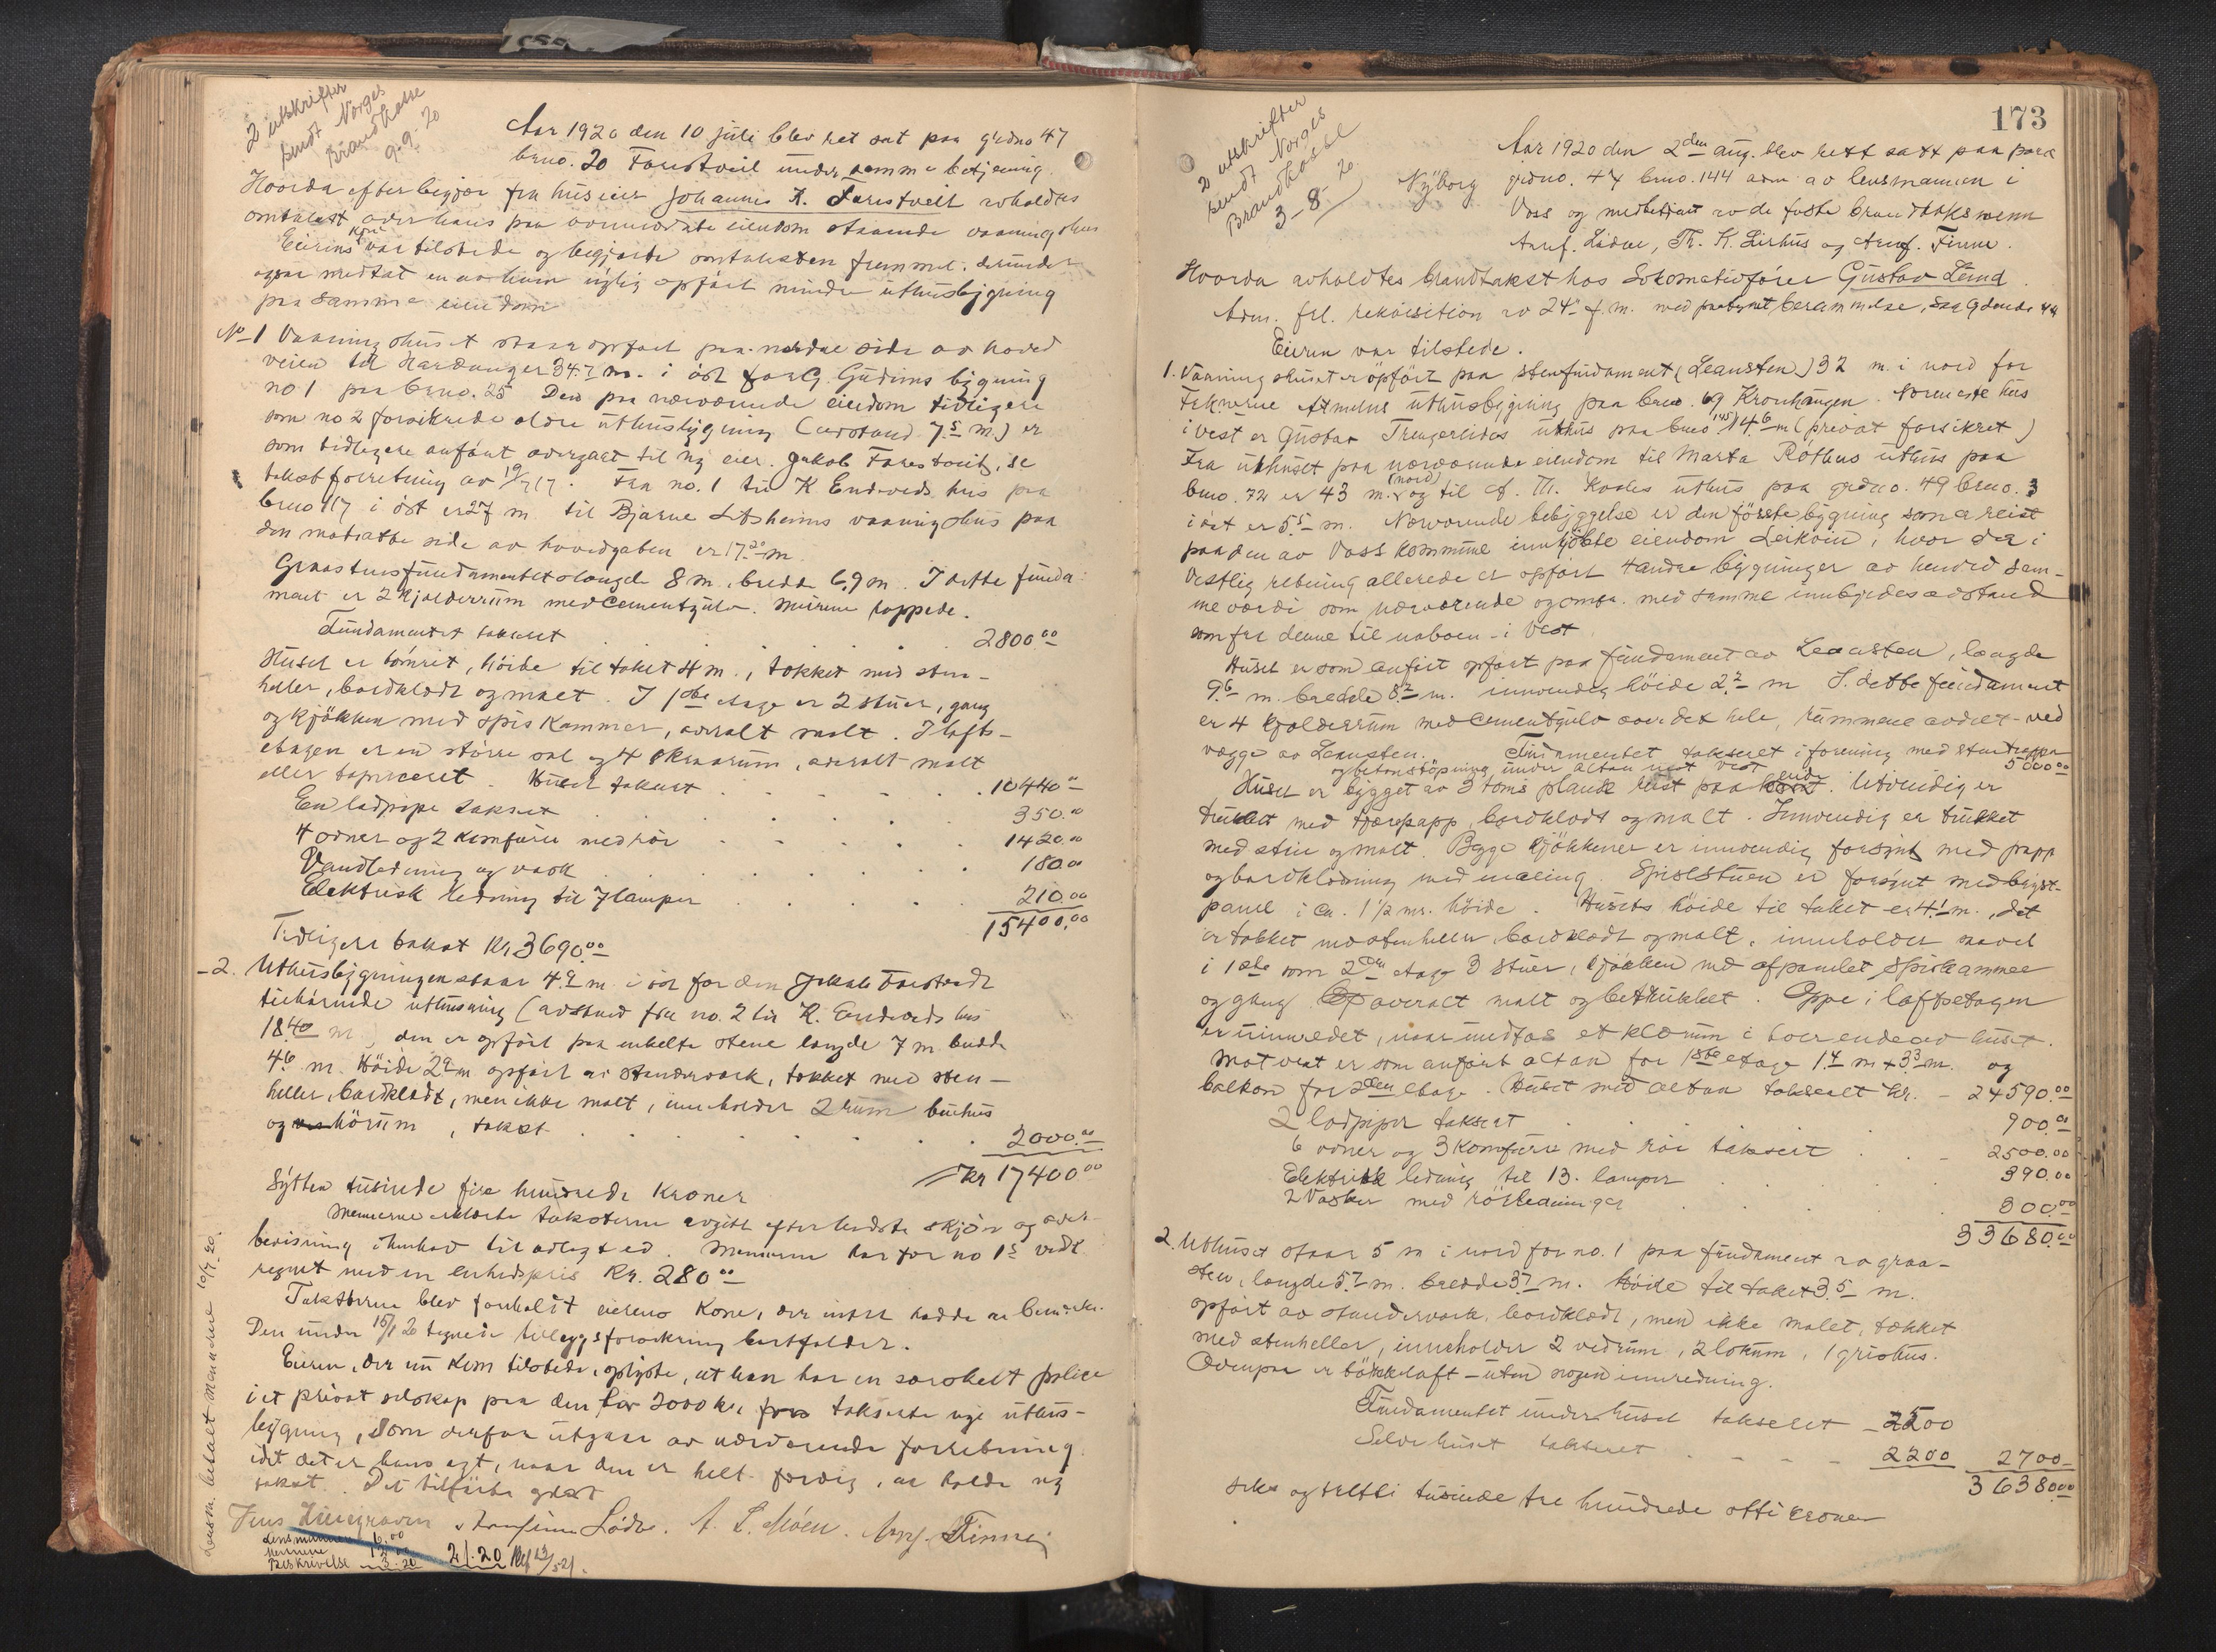 2 utskrifter
sendt Norges
Brandkasse
9-9-20
Aar 1920 den 10 juli blev ret sat paa grdno 47
bruo. 20 Farestveit under samme betjening.
Hvorda efter begjær fra huseier Johannes K. Farestveit avholdtes
omtakst over hans paa nævnte eiendom staaende vaaningshus
Eierens kone var tilstede og begjærte omtaksten fremmet, derunder
ogsaa medtat en av ham nylig opført mindre uthusbygning
paa samme eiendom
No 1 Vaaningshuset staar opført paa nordre side av hoved
veien til Hardanger 34.7 m. i øst for G. Gudims bygning
no 1 paa bruo. 25 Den paa nærværende eiendom tidligere
som no 2 forsikrede ældre uthusbygning (avstand 7.5 m) er
som tidligere anført overgaat til ny eier. Jakob Farestveit, se
takstforretning av 19/7 17. Fra no. 1 til K. Endeveds hus paa
bruo 117 i øst er 27 m til Bjarne Litsheims vaaningshus paa
den motsatte side av hovedgaten er 17.20 m.
Graastensfundamentets længde 8 m, bredde 6.9 m. I dette funda-
ment er 2 kjælderrum med Cementgulv. Murene pappede.
Fundamentet takseret 2800.00
Huset er tømret, høide til taket 4 m., tækket med sten-
heller, bordklædt og malt. I 1ste etage er 2 stuer, gang
og kjøkken med spiskammer, overalt malt. I lofts-
etagen er en større sal og 4 rum, overalt malt
eller tapeceret. Huset takseret 10440.00
En ladpipe takseret 350.00
4 ovner og 2 komfurer med rør 1420.00
Vandledning og vask 180.00
Elektrisk ledning til 7 lamper 210.00
15400.00
Tidligere takst Kr 3690.00
- 2. Uthusbygningen staar 4.2 m i øst for den Jakob Farestveit
tilhørende uthusning (avstand fra no. 2 til K. Endeveds hus
18.40 m), den er opført paa enkelte stene længde 7 m bredde
4.6 m. Høide 2.9 m opført av standerverk, tækket med sten-
heller, bordklædt, men ikke malt, inneholder 2 rum
og hørum, takst 2000.00
Kr 17400.00
Sytten tusinde fire hundrede Kroner
Mennerne erklærte taksterne avgitt efter bedste skjøn og over-
bevisning i henhold til avlagt ed. Mennerne har for no 1 vedk.
regnet med en enhedspris Kr. 280.00
Taksterne blev forholdt eierens kone, der intet hadde at bemerke.
Den under 15/1 20 tegnede tillægsforsikring bortfalder.
Eieren, der nu kom tilstede, oplyste, at han har en særskilt police
i et privat selskap paa den for 2000 kr. takserte nye uthus-
bygning, som derfor utgaar av nærværende forretning
idet det er hans agt, naar den er helt færdig, at holde ny
takst. Det tilførte godtat
Jens Lødve. A. L. Moen. Arnf. Finne
Lensmannen 6.00
Mennerne 12.00
Beskrivelse 3.20 21.20
Lensm. betalt Mennene 10/7 20.
173
2 utskrifter
sendt Norges
Brandkasse
3-8-20
Nyborg
Aar 1920 den 2den aug. blev rett satt paa paa
grdno. 47 bruo. 144 adm. av lensmannen i
Voss og medbetjent av de faste brandtaksmenn
Arnf. Lødve, Th. K. Lirhus og Arnf. Finne.
Hvorda avholdtes brandtakst hos Lokomotivfører Gustav Lund
Adm. frl. rekvisition av 24de f. m. med paategnet berammelse,
Eieren var tilstede.
1. Vaaningshuset er opført paa stenfundament (Leansten) 32 m. i nord for
uthusbygning paa bruo. 69 Kronhaugen. Nærmeste hus
i vest er Gustav Trengereids uthus paa bruo 145 14.6 m (privat forsikret)
Fra uthuset paa nærværende eiendom til Marta Røthes uthus paa
bruo. 72 er 43 m. (nord) og til uthus paa grdno. 49 bruo. 3
i øst er 5.5 m. Nærværende bebyggelse er den første bygning som er reist
paa den av Voss kommune innkjøbte eiendom Leikvin, hvor der i
vestlig retning allerede er opført 4 andre bygninger av henved sam-
me værdi som nærværende og omtr. med samme innbyrdes avstand
som fra denne til naboen i vest.
Huset er som anført opført paa fundament av Leansten, længde
9.6 m. bredde 8.2 m. innvendig høide 2.2 m I dette fundament
er 4 kjælderrum med cementgulv over det hele, rummene avdelt ved
vægge av Leansten. Fundamentet takseret i forening med stentrappe
og betonstøpning under altan mot vest 5000.00
Huset er bygget av 3 toms planke reist paa ende. Utvendig er
trukket med tjærepapp, bordklædt og malt. Innvendig er trukket
med strie og malt. Begge kjøkkener er innvendig forsynt med papp
og bordklædning med maling. Spisestuen er forsynt med bryst-
panel i ca. 1 1/2 mr. høide. Husets høide til taket er 4.1 m., det
er tækket med stenheller, bordklædt og malt, inneholder saavel
i 1ste som 2den etage 3 stuer, kjøkken med afpanelet spiskammer
og gang overalt malt og betrukket. Oppe i loftsetagen
er uinnredet, naar undtas et klærum i hver ende av huset.
Mot vest er som anført altan for 1ste etage 1.7 m x 3.3 m. og
balkon for 2den etage. Huset med altan takseret Kr. - 24590.00
2 ladpiper takserat 900.00
6 ovner og 3 Komfurer med rør takseret 2500.00
Elektrisk ledning til 13. lamper 390.00
2 Vasker med rørledninger 300.00
33680.00
2. Uthuset staar 5 m i nord for no. 1 paa fundament av graa-
sten, længde 5.7 m. bredde 3.7 m. Høide til taket 3.5 m.
opført av standerverk, bordklædt, men ikke malet, tækket
med stenheller, inneholder 2 vedrum, 2 lorum, 1 grishus.
Ovenpaa er løkkeloft - uten nogen innredning.
Fundamentet under huset takseret - 500
Selve huset takseret 2200 2700-
36380.00
seks og tretti tusinde tre hundrede otti kroner